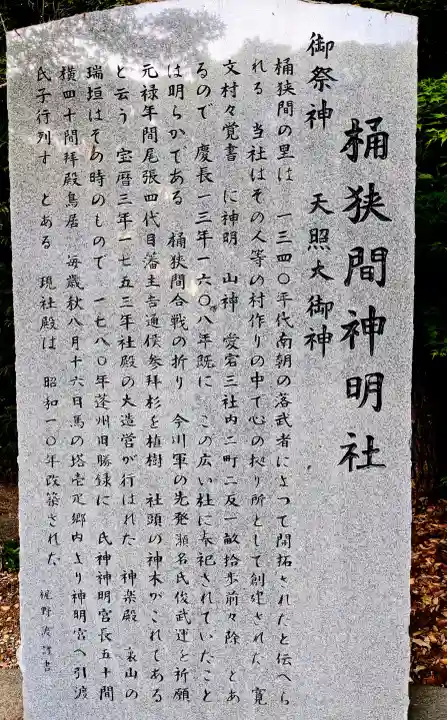 桶狭間神明社
御祭神　天照大御神
桶狭間の里は　一三四〇年代南朝の落武者によって開拓されたと伝へら
れる　当社はその人等の村作りの中で心の拠り所として創建された　寛
文村々覚書　に神明　山神　愛宕三社内二町二反一畝拾歩前々除　とあ
るので　慶長一三年一六〇八年既に　この広い社に奉祀されていたこと
は明らかである　桶狭間合戦の折り　今川軍の先発瀬名氏俊武運を祈願
元禄年間尾張四代目藩主吉通侯参拝杉を植樹　社頭の神木がこれである
と云う　宝暦三年一七五三年社殿の大造営が行はれた　神楽殿　裏山の
瑞垣はその時のもので　一七八〇年蓬州旧勝録に　氏神神明宮長五十間
横四十間拝殿鳥居　毎歳秋八月十六日馬の塔壱疋郷内より神明宮へ引渡
氏子行列す　とある　現社殿は　昭和一〇年改築された　梶野渡謹書